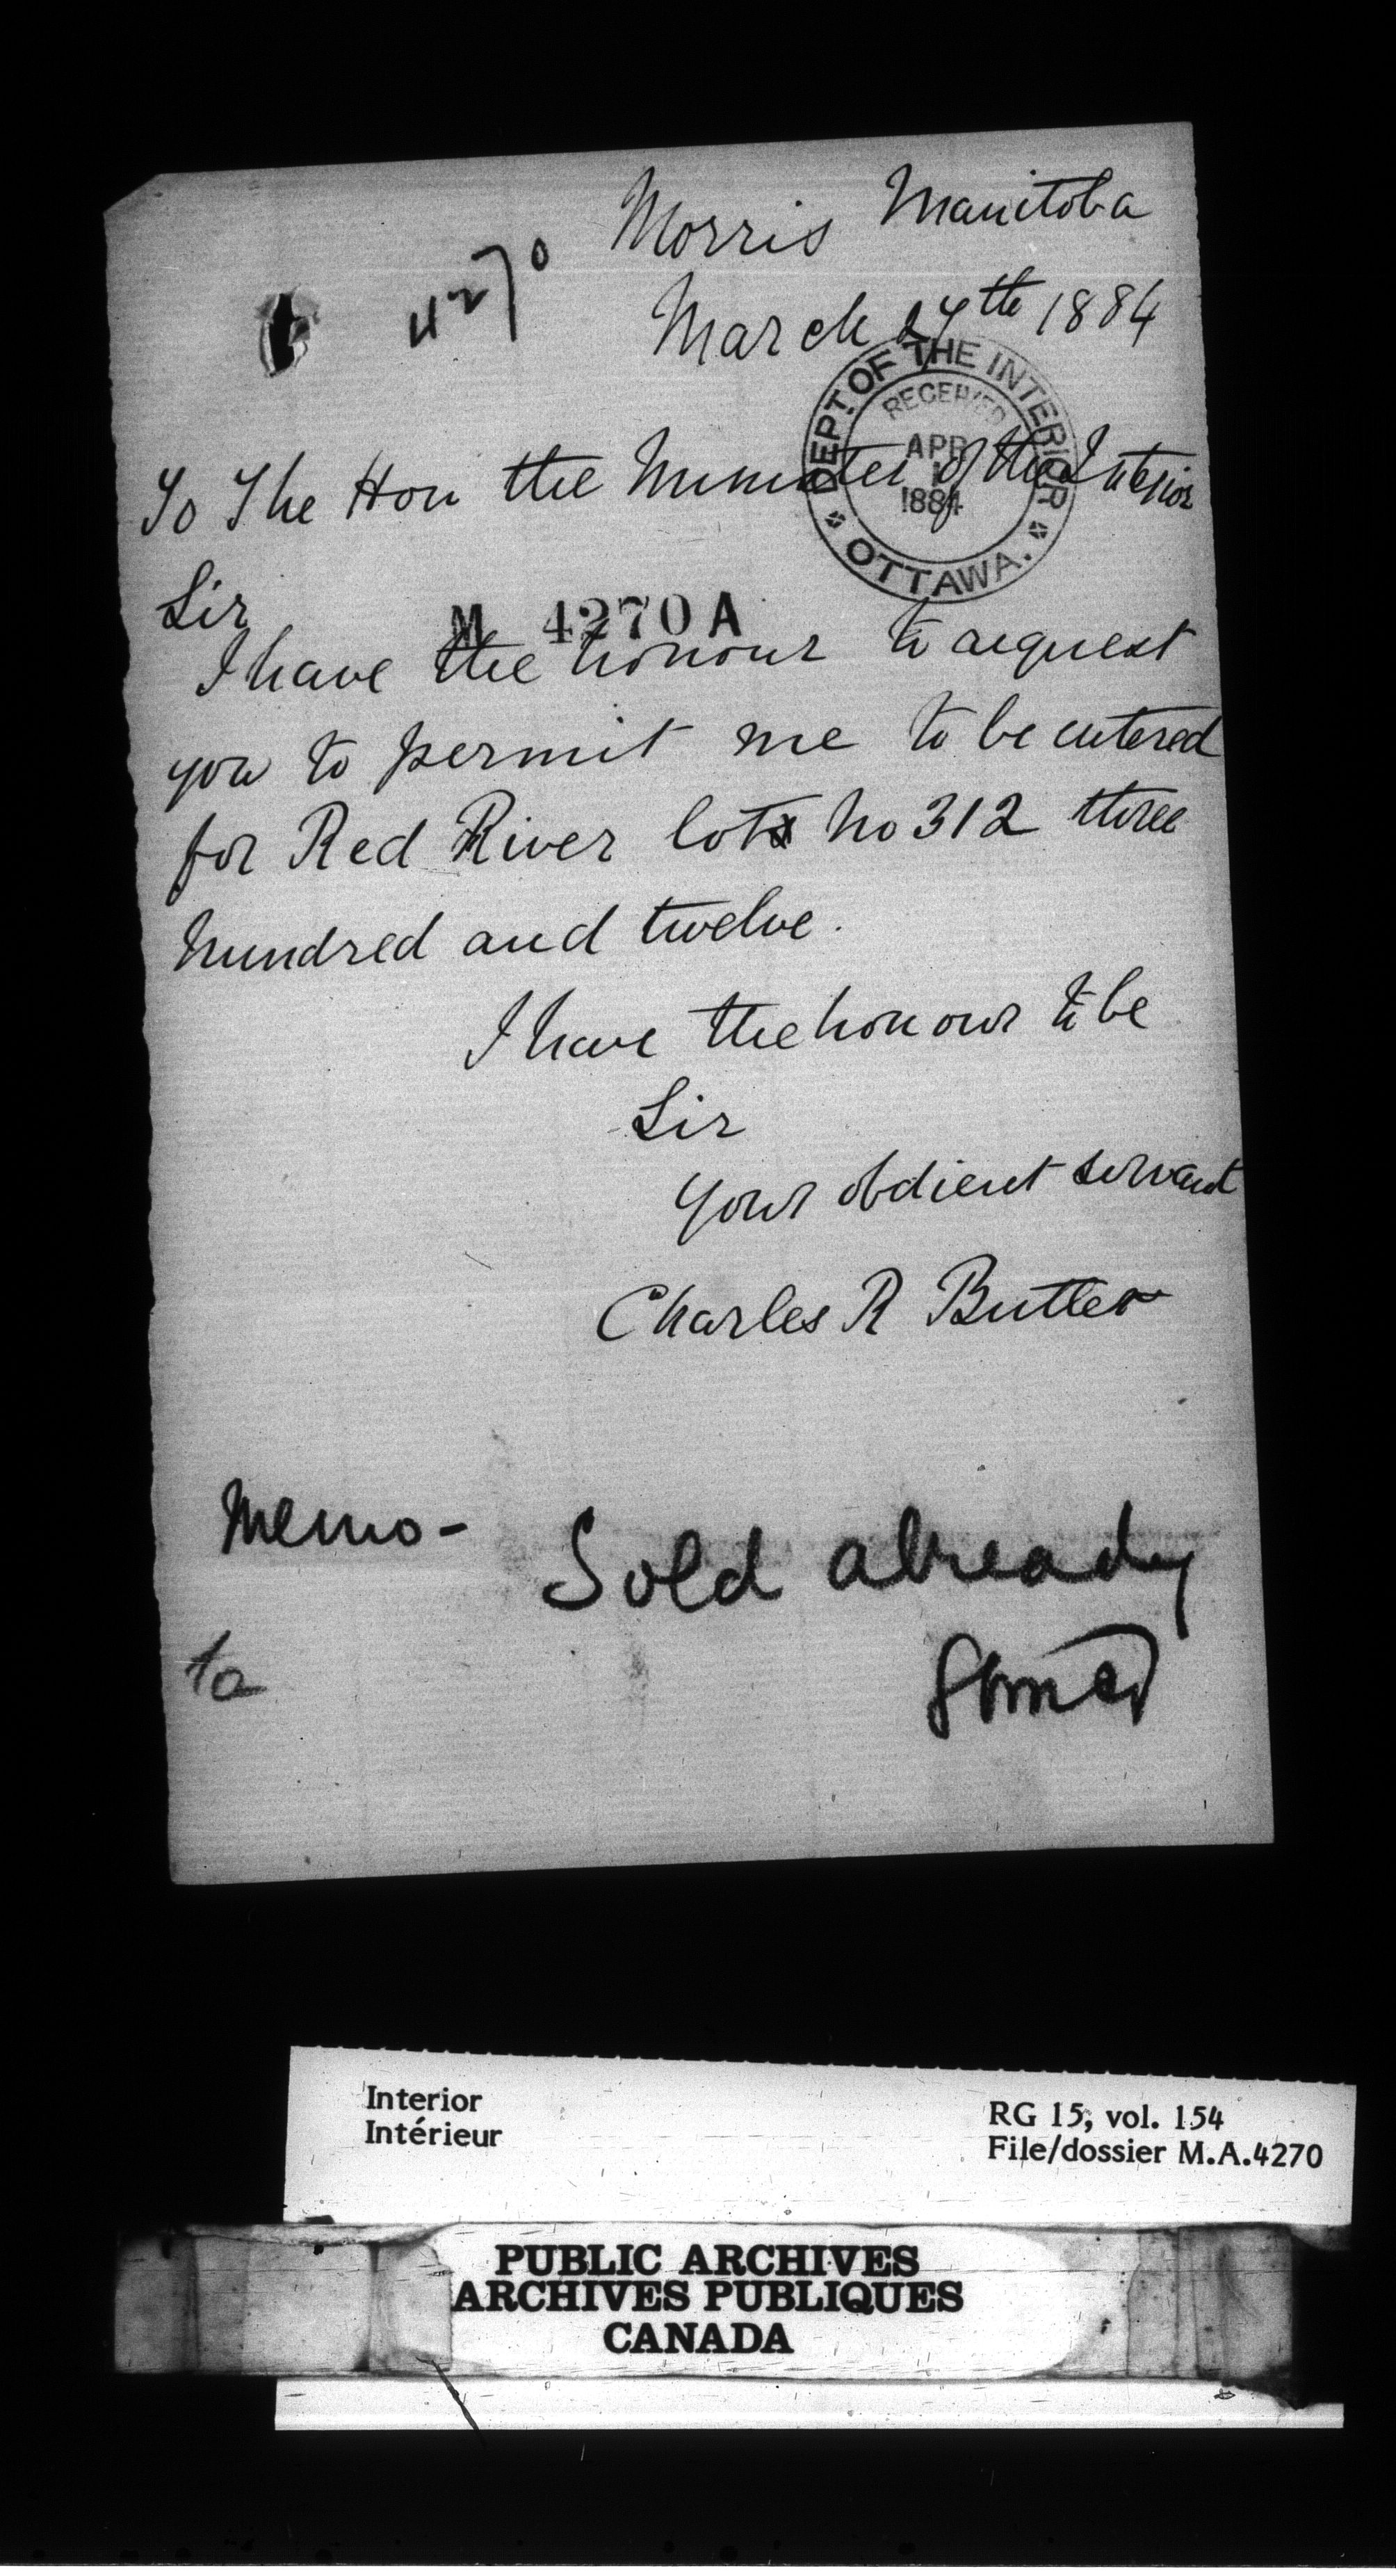 Morris Manitoba
4270
March 27th 1884
DEPT. OF THE INTERIOR
RECEIVED
APR
1
1884
OTTAWA.
To The Hon the Minister of the Interior
Sir
M 4270 A
I have the honour to request
you to permit me to be entered
for Red River lot No 312 three
hundred and twelve.
I have the honour to be
Sir
your obdient servant
Charles R Butler
Memo -
Sold already
Interior
Intérieur
RG 15, vol. 154
File/dossier M.A.4270
PUBLIC ARCHIVES
ARCHIVES PUBLIQUES
CANADA